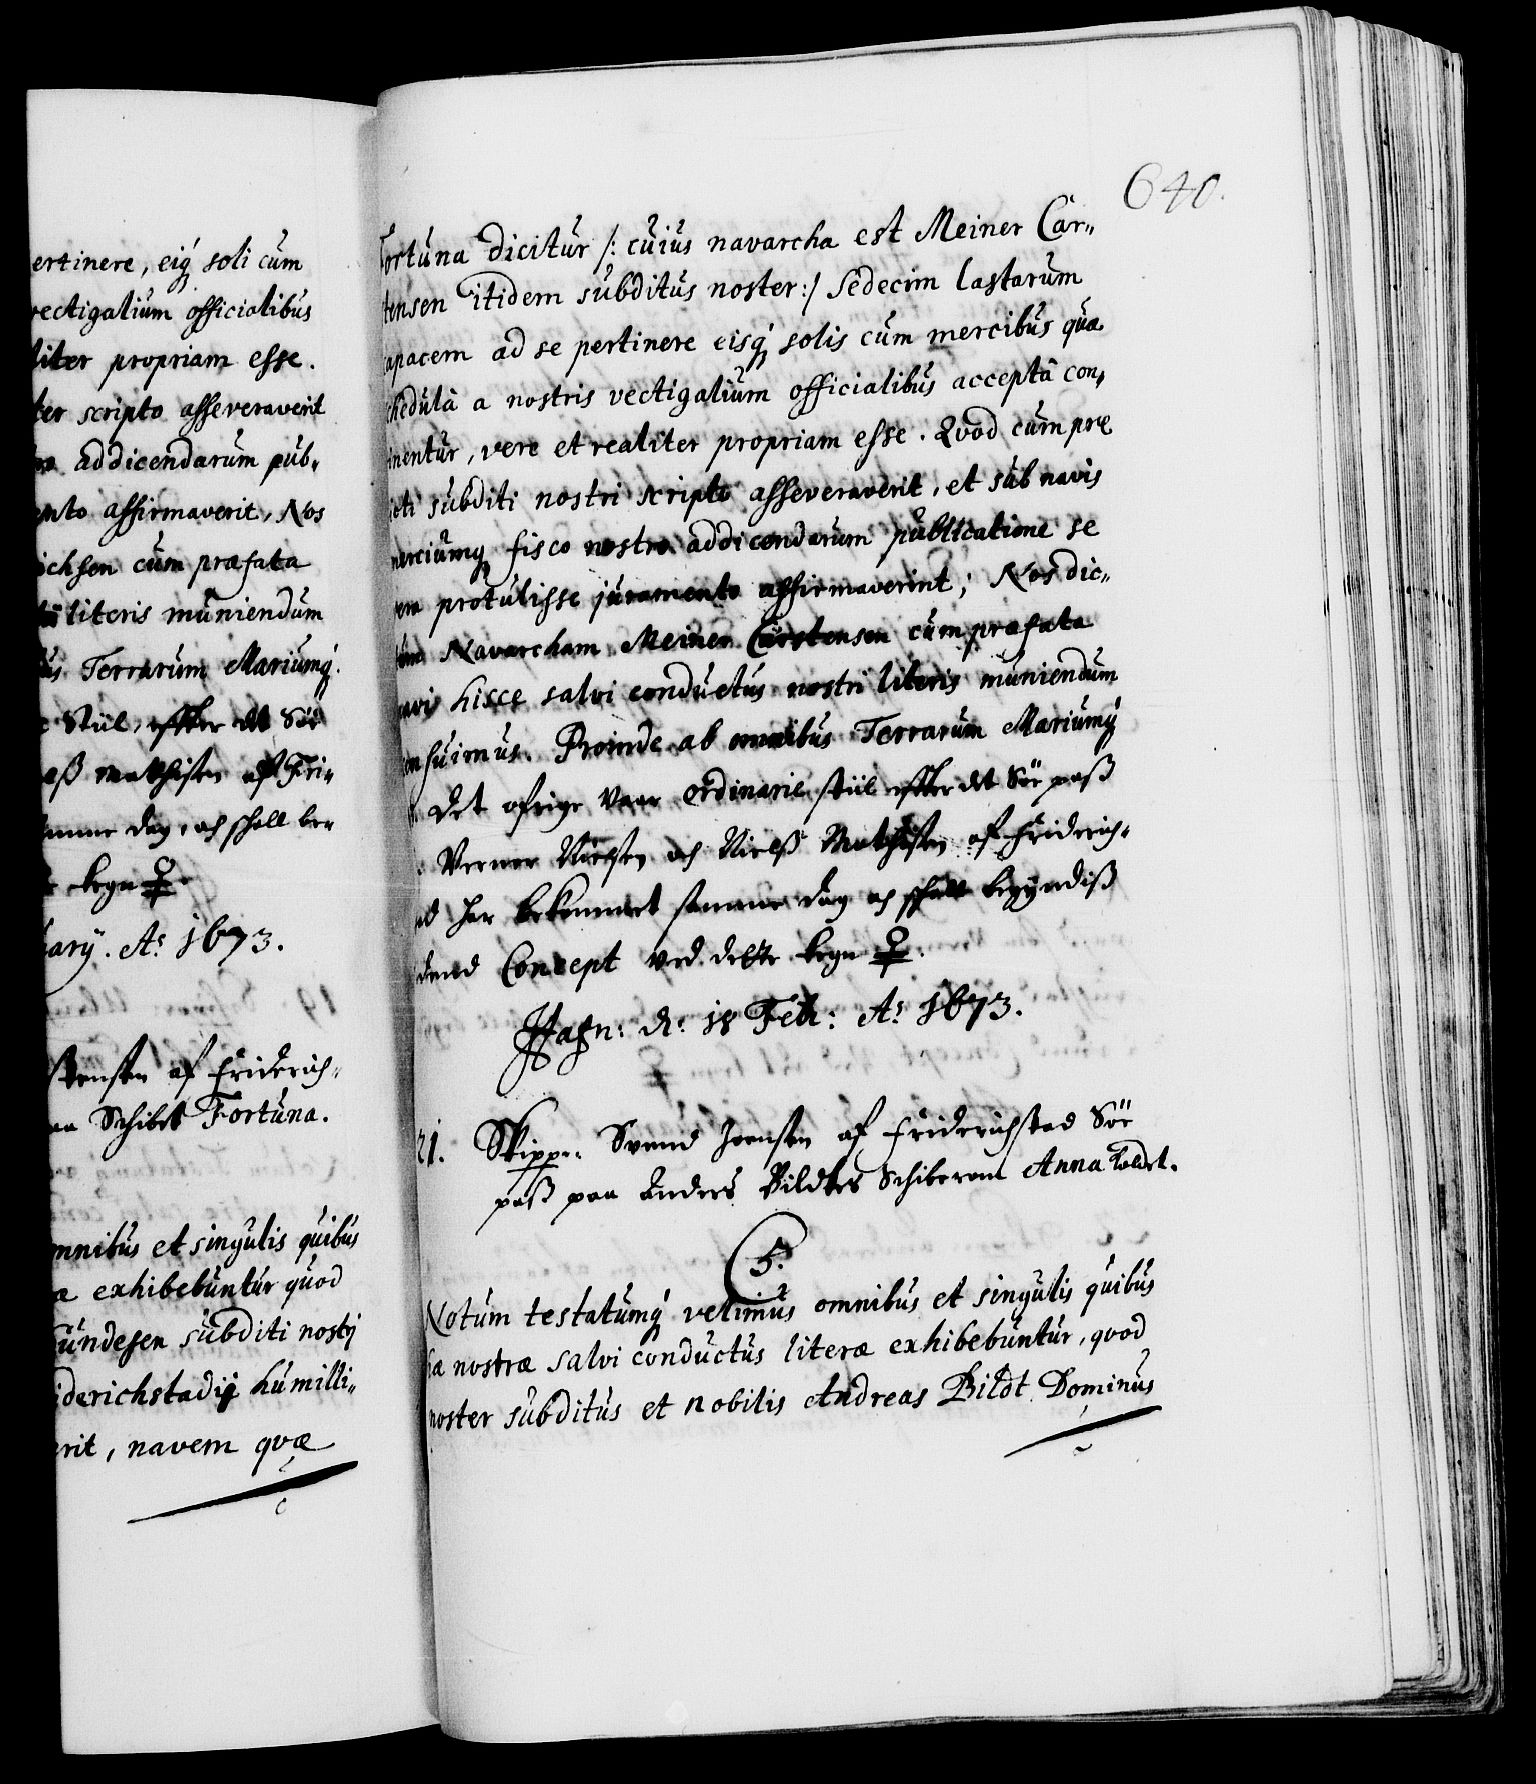 ertinere, eiq́ soli cum
vectigalium officialibus
liter propriam esse.
ter scripto asseveraverit
addicendarum pub„
ento affirmaverit, Nos
ichsen cum præfata
literis muniendum
us Terrarum Mariumq́.
Stiil, effter dít Söe
aß Mathisen af Fri„
amme dag, och schall be„
tegn ♀.
uarÿ. Aº 1673.
stensen af Friderich„
aa Schibet Fortuna.
omnibus et singulis quibus
æ exhibebuntur quod
undesen subditi nostrj
iderichstadij humilli„
erit, navem qvæ
640.
Fortuna dicitur /: cuius navarcha est Meiner Car„
tensen itidem subditus noster:/ Sedecim lastarum
capacem ad se pertinere eisq́ solis cum mercibus quæ
schedulâ a nostris vectigalium officialibus acceptâ con„
tinentur, vere et realiter propriam esse. Qvod cum præ
icti subditi nostri scripto asseveraverit, et sub navis
merciumq́ fisco nostro addicendarum publicatione se
vera protulisse juramento affirmaverint; Nos dic„
tum Navarcham Meiner Carstensen cum præfata
navi hisce salvi conductus nostri literis muniendum
censuimus. Proinde ab omnibus Terrarum Mariumq́
Det ofrige vaar ordinarie stiil effter dít Söe paß
Verner Nielsen och Nielß Mathisen af Friderich„
ad har bekommet samme dag och schall begÿndiß
dend Concept ved dette tegn ♀.
Hafn: d: 18 Feb: Aº 1673.
21. Skipper Svend Joensen af Friderichstad Söe
paß paa Anders Bildtes Schibe som Anna kaldet.
5.
Notum testatumq́ velimus omnibus et singulis quibus
hæ nostræ salvi conductus literæ exhibebuntur, qvod
noster subditus et nobilis Andreas Bildt Dominus